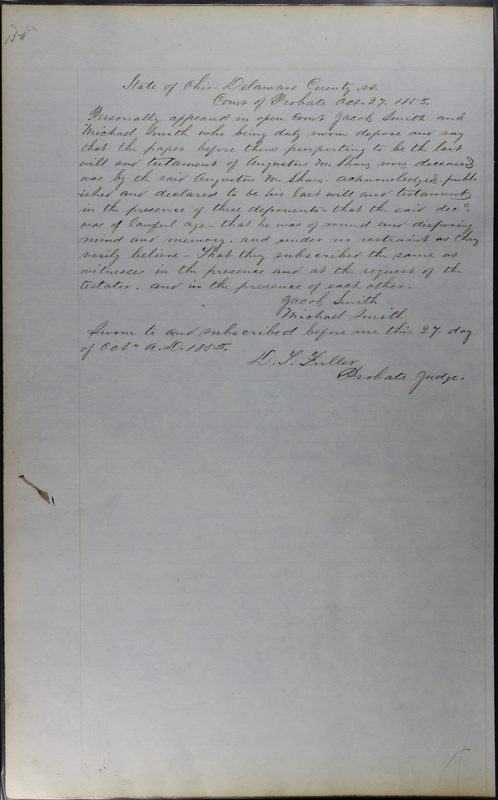 State of Ohio Delaware County ss.
Court of Probate Oct. 27. 1855.
Personally appeared in open Court Jacob Smith and
Michael Smith who being duly sworn depose and say
that the paper before them purporting to be the last
will and testament of Augustus M. Shaw now deceased
was by the said Augustus M. Shaw. acknowledged, publ
ished and declared to be his last will and testament
in the presence of these deponents - that the said dec.
was of lawful age - that he was of sound and disposing
mind and memory. and under no restraint as they
verily believe - That they subscribed the same as
witnesses in the presence and at the request of the
testator. and in the presence of each other.
Jacob Smith
Michael Smith
Sworn to and subscribed before me this 27. day
of Oct. A.D. 1855.
D. T. Fuller
Probate Judge.